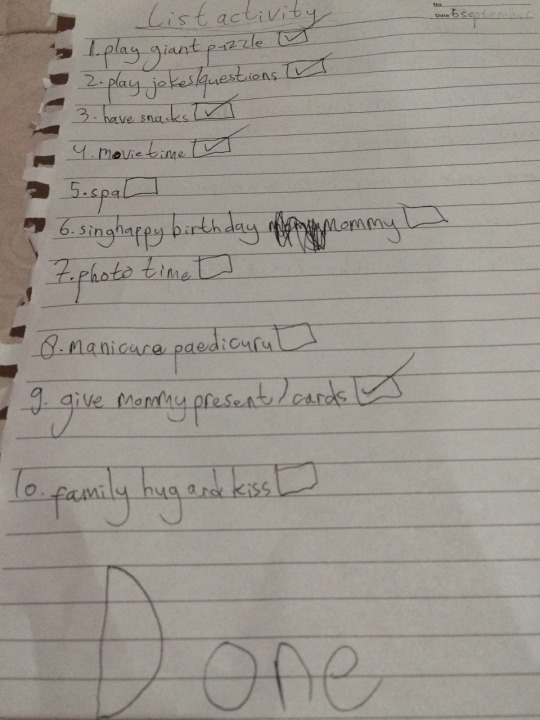 List activity
No
Date 6 september
1. play giant puzzle
2. play jokes/questions
3. have snacks
4. movie time
5. spa
6. sing happy birthday mommy
7. photo time
8. manicura paedicuru
9. give mommy present/cards
10. family hug and kiss
Done